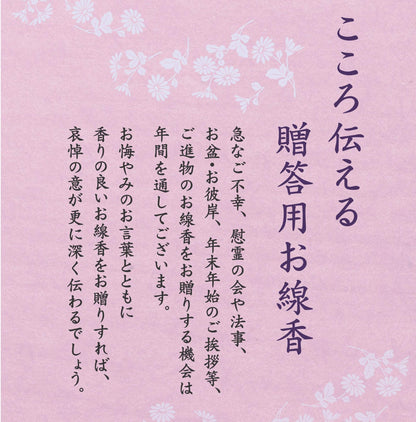 こころ伝える
贈答用お線香
急なご不幸、慰霊の会や法事、
お盆・お彼岸、年末年始のご挨拶等、
ご進物のお線香をお贈りする機会は
年間を通してございます。
お悔やみのお言葉とともに
香りの良いお線香をお贈りすれば、
哀悼の意が更に深く伝わるでしょう。